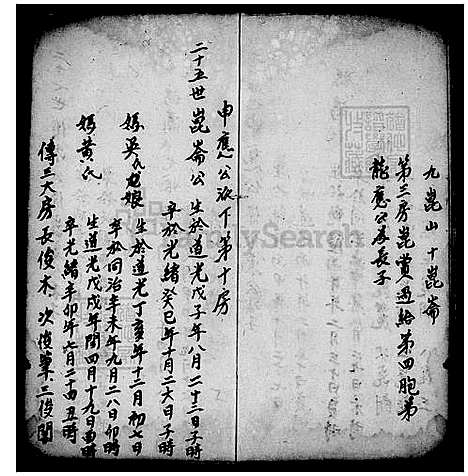 九崑山 十崑崙
第三房崑賞過給第四胞弟
龍應公為長子
申應公派下第十房
二十五世崑崙公 生於道光戊子年八月二十三日子時
卒於光緒癸巳年十月二六日子時
妣吳氏 娘 生於道光丁亥年十二月初七日
卒於同治辛未年九月二八日卯時
妣黃氏 生道光戊戌年閏四月十九日酉時
卒光緒辛卯年七月二十 丑時
傳三大房長俊木 次俊 三俊開
FamilySearch